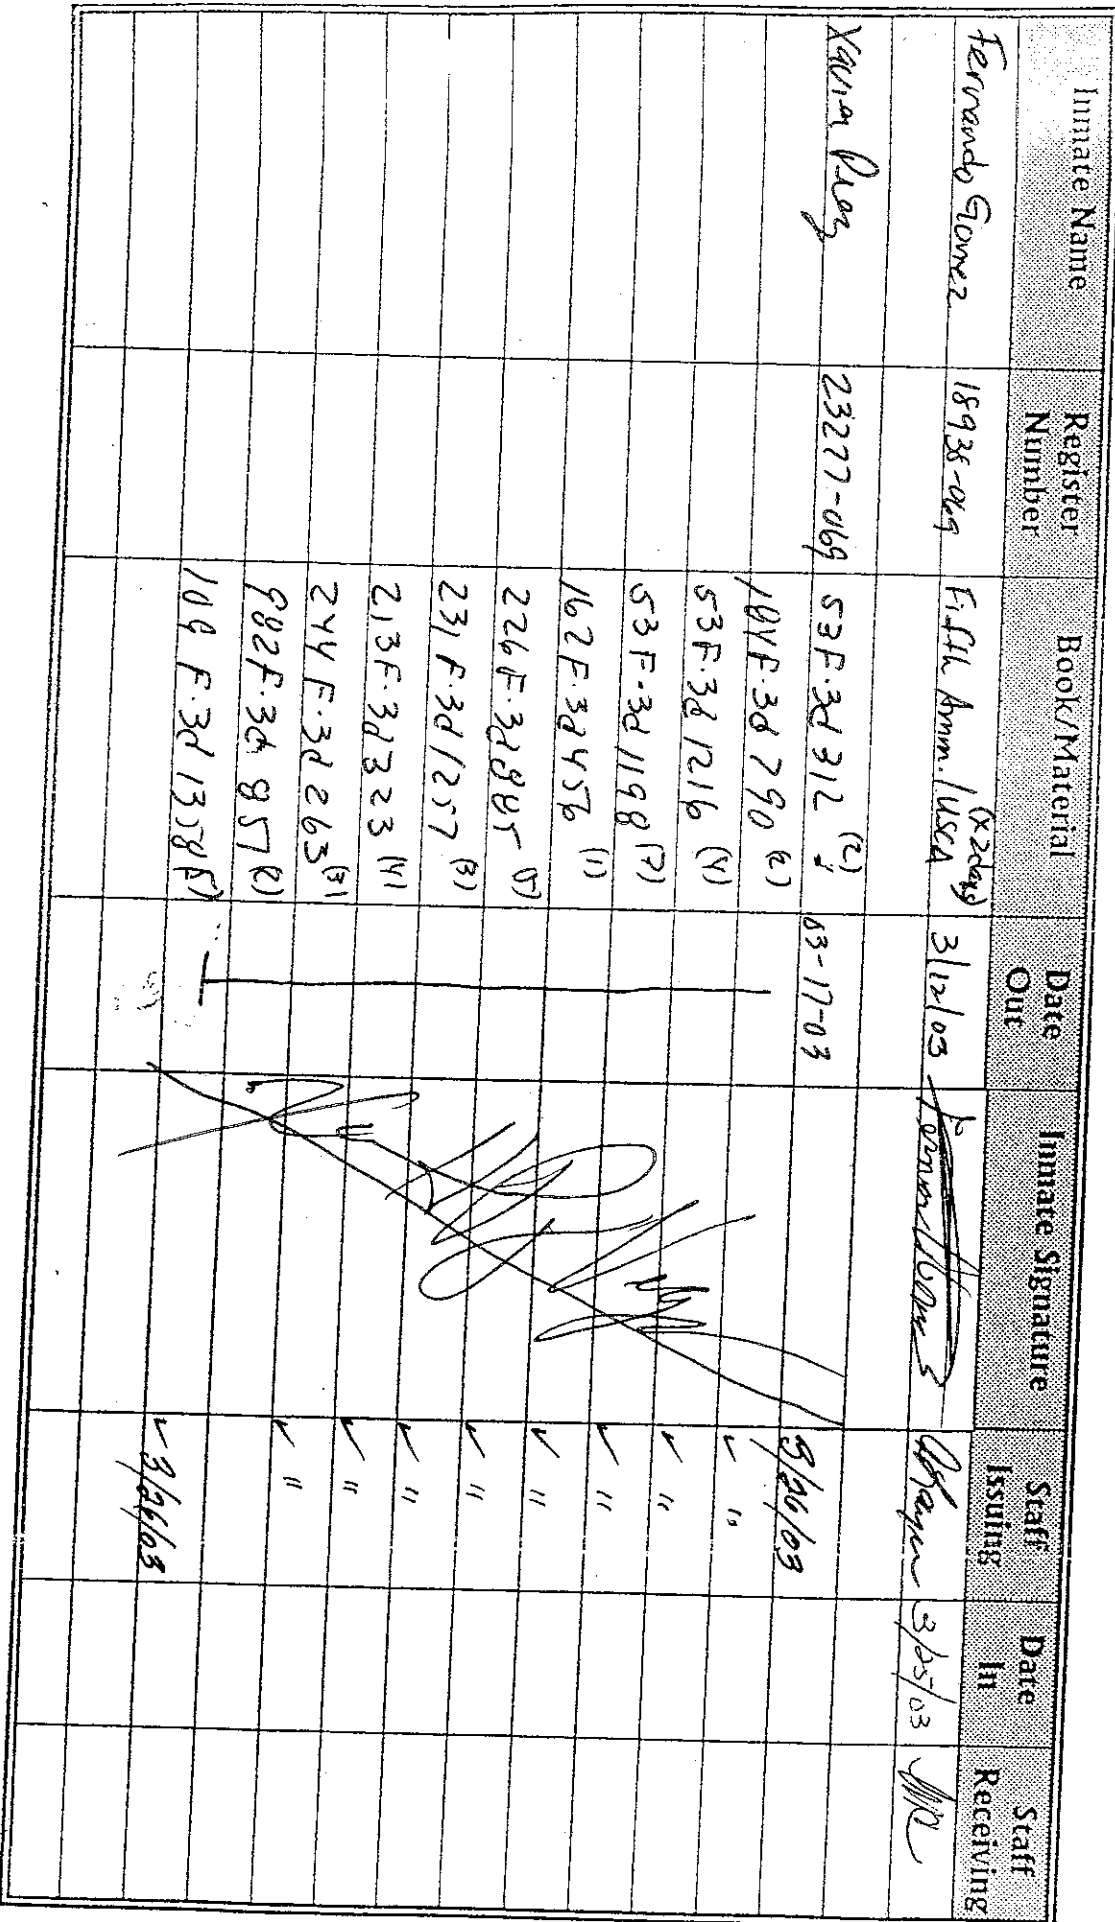 Inmate Name Register Number Book/Material Date Out Inmate Signature Staff Issuing Date In Staff Receiving
Fernando Gomez 18938-069 Fifth Amm./USCA (x2days) 3/12/03 3/25/03
23277-069 53 F.3d 312 (2) 03-17-03 3/26/03
184 F.3d 790 (2) ✓ "
53 F.3d 1216 (4) ✓ "
53 F.3d 1198 (7) ✓ "
162 F.3d 456 (1) ✓ "
226 F.3d 885 (5) ✓ "
231 F.3d 1257 (3) ✓ "
213 F.3d 323 (4) ✓ "
244 F.3d 263 (3) ✓ "
982 F.3d 857 (2)
109 F.3d 1358 (5) ✓ 3/26/03